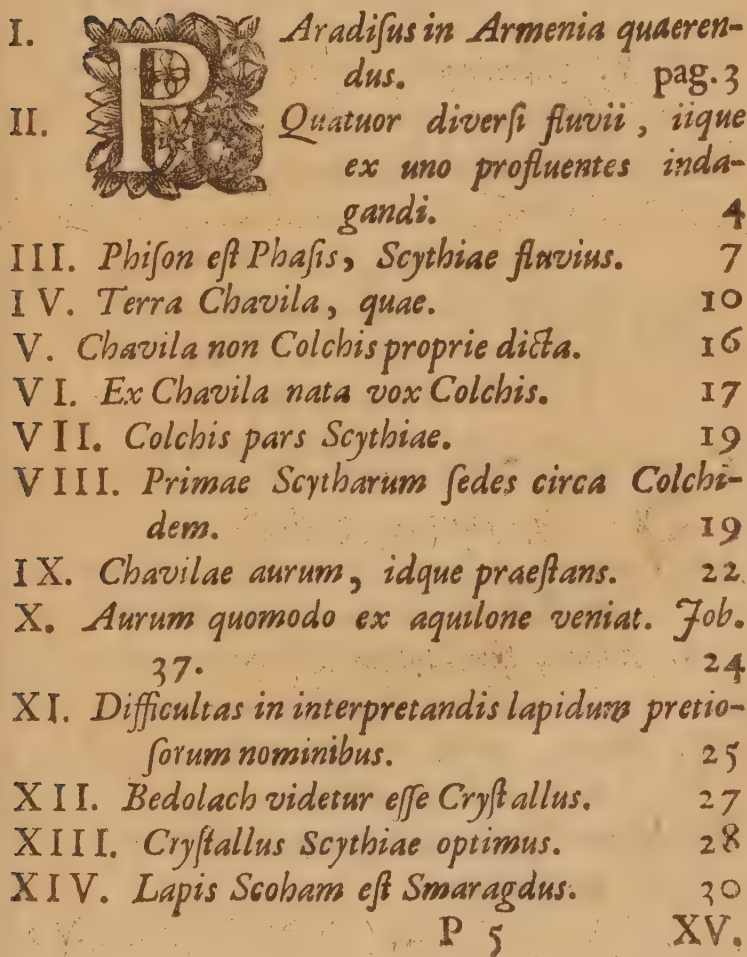 I. PAradiſus in Armenia quaeren-
dus. pag. 3
II. Quatuor diverſi fluvii, iique
ex uno profluentes inda-
gandi. 4
III. Phiſon eſt Phaſis, Scythiae fluvius. 7
IV. Terra Chavila, quae. 10
V. Chavila non Colchis proprie dicta. 16
VI. Ex Chavila nata vox Colchis. 17
VII. Colchis pars Scythiae. 19
VIII. Primae Scytharum ſedes circa Colchi-
dem. 19
IX. Chavilae aurum, idque praeſtans. 22
X. Aurum quomodo ex aquilone veniat. Job.
37. 24
XI. Difficultas in interpretandis lapidum pretio-
ſorum nominibus. 25
XII. Bedolach videtur eſſe Cryſtallus. 27
XIII. Cryſtallus Scythiae optimus. 28
XIV. Lapis Scoham eſt Smaragdus. 30
P 5 XV.